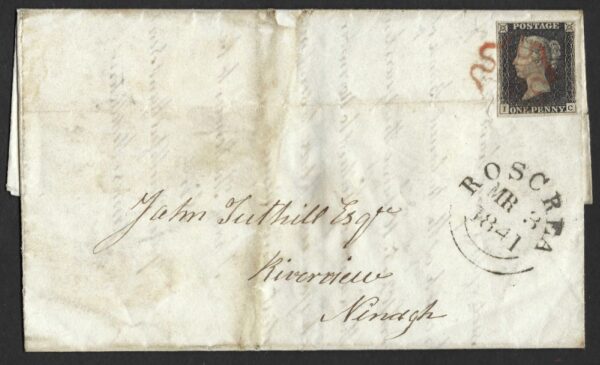 POSTAGE
I C
ONE PENNY
ROSCREA
MR 3
1841
John Tuthill Esqr
Riverview
Nenagh